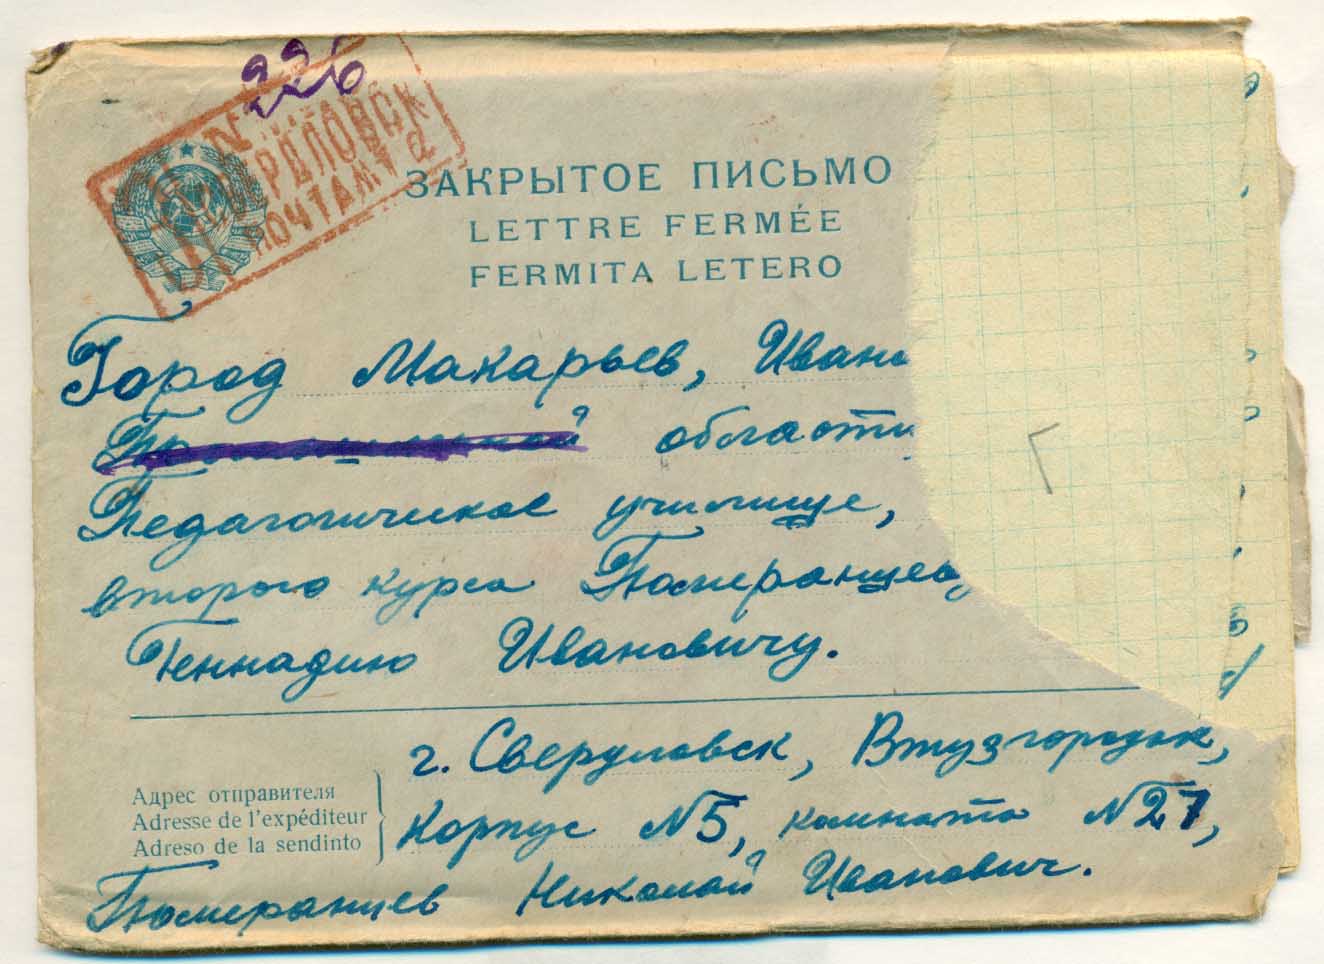 226
СВЕРДЛОВСК
ПОЧТАМТ
ЗАКРЫТОЕ ПИСЬМО
LETTRE FERMÉE
FERMITA LETERO
Город Макарьев, Ивано
области
Педагогическое училище,
второго курса Померанцеву
Геннадию Ивановичу.
г. Свердловск, Втузгородок,
Адрес отправителя
Adresse de l'expéditeur
Adreso de la sendinto
корпус №5, комната №27,
Померанцев Николай Иванович.